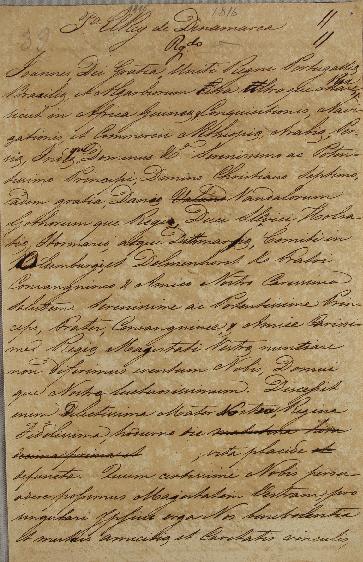 1816
39
Pª ElRey de Dinamarca
Rgdo
Joannes, Dei Gratia, Uniti Regni Portugaliæ,
Brasiliæ, Algarbiorum citra ultraque Mare,
in Africa Guineæ, Conquisitionis, Navi
gationis, et Commercii Æthiopiæ, Arabiæ, Per
siæ, Indiæ, Dominus &ª Serenissimo ac Poten
tissimo Principi, Domino Christiano Septimo,
eadem gratia, Daniæ Vandalorum
Gothorumque Regi, Duci Slesvici, Holsa
tiæ, Stormariæ atque Dittmarsiæ, Comiti in
Oldenburg et Delmenhorst & Fratri
Consanguineo & Amico Nostro Carissimo
Salutem. Serenissime ac Potentissime Prin
ceps, Frater, Consanguinee, & Amice Carissi
me. Regiæ Magestati Vestræ nunciare
non differimus eventum Nobis, Domui
que Nostræ luctuosissimum. Decessit
enim Dilectissima Mater Nostra, Regina
Fidelissima, die
, vita placide
deposita. Quum certissime Nobis persu
adere possimus Magestatem Vestram, pro
singulari Ipsius erga Nos benevolentia
et mutuis amicitiæ, et Caritatis vinculis,